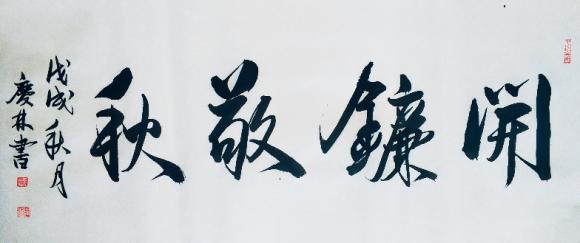 開鐮敬秋
戊戌秋月
慶林書